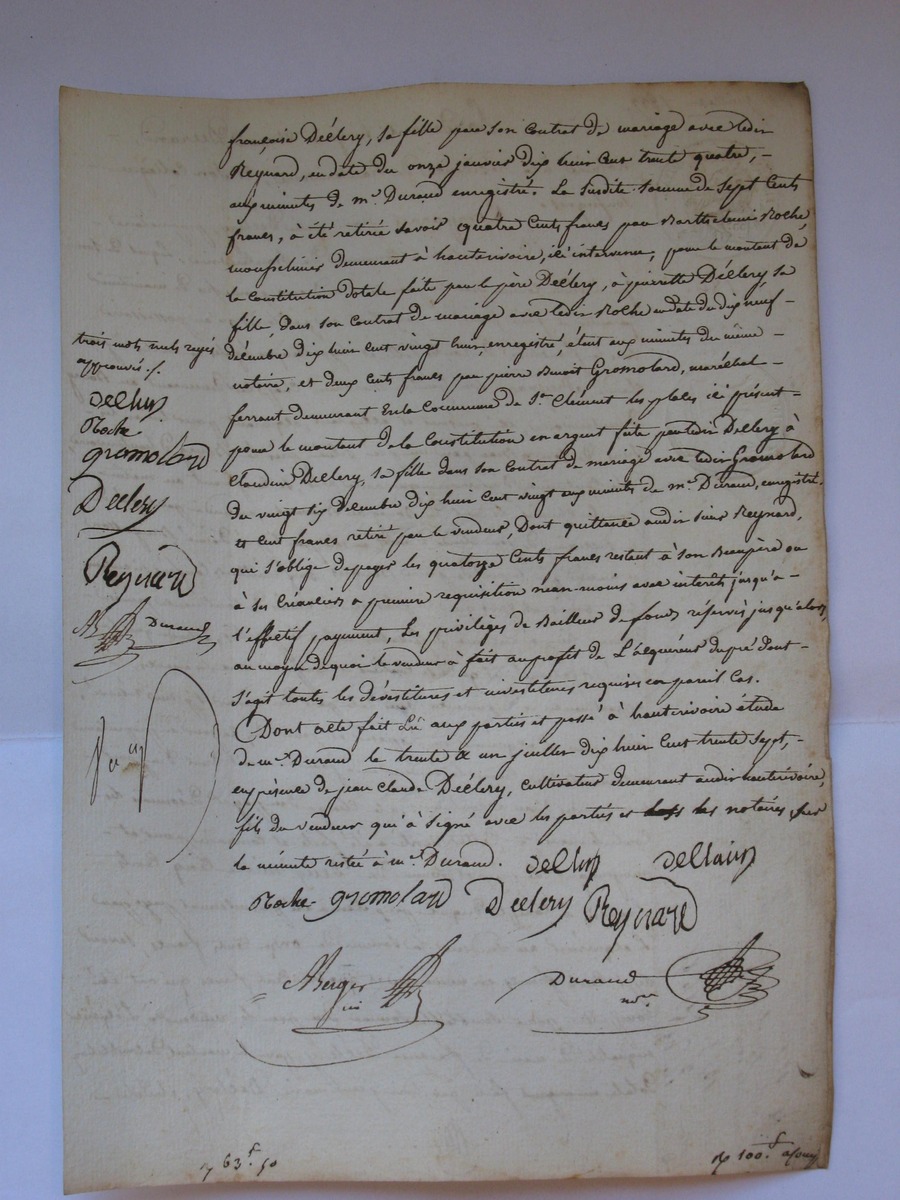 françoise Déélery, sa fille par son Contrat de mariage avec ledit
Reynard, en date du onze janvier dix huit cent trente quatre, -
aux minutes de me. Durand enregistré. La susdite somme de Sept Cents
francs, à été retirée savoir quatre Cents francs par Barthelemi Roche,
mousselinier demeurant à hauterivoire, ici intervenu, pour le montant de
la Constitution dotale faite par le père Déélery, à pierrette Déélery sa
fille, dans son Contrat de mariage avec ledit Roche en date du dix neuf -
décembre dix huit cent vingt huit, enregistré, étant aux minutes du même -
notaire, et deux Cents francs par pierre Benoit Gromolard, maréchal -
ferrant demeurant En la Commune de St. Clément les places ici présent -
pour le montant de la Constitution en argent faite par ledit Déélery à
Claudine Déélery, sa fille dans son Contrat de mariage avec ledit Gromolard
du vingt six décembre dix huit cent vingt aux minutes de me. Durand, enregistré.
et cent francs retiré par le vendeur, Dont quittance audit sieur Reynard,
qui s'oblige de payer les quatorze Cents francs restant à son Beaupère ou
à ses Créanciers a premiere requisition nean-moins avec interêts jusqu'a -
l'effectif payement, Les priviléges de Bailleur de fonds réservés jusqu'alors,
au moyen de quoi le vendeur à fait au profit de L'aquéreur du pré dont -
s'agit toutes les dévestitures et investitures requises en pareil Cas.
Dont acte fait Lu aux parties et passé à hauterivoire étude
de me. Durand le trente & un juillet dix huit Cent trente sept, -
en présence de jean Claude Déélery, Cultivateur demeurant audit hauterivoire,
fils du vendeur qui à signé avec les parties et les notaires sur
la minute restée à me. Durand.
Roche gromolard Déélery Reynard
Berger Durand
nore
trois mots nuls rayés
approuvés ./.
Roche
gromolard
Déélery
Reynard
Durand
63 f 50
100 f